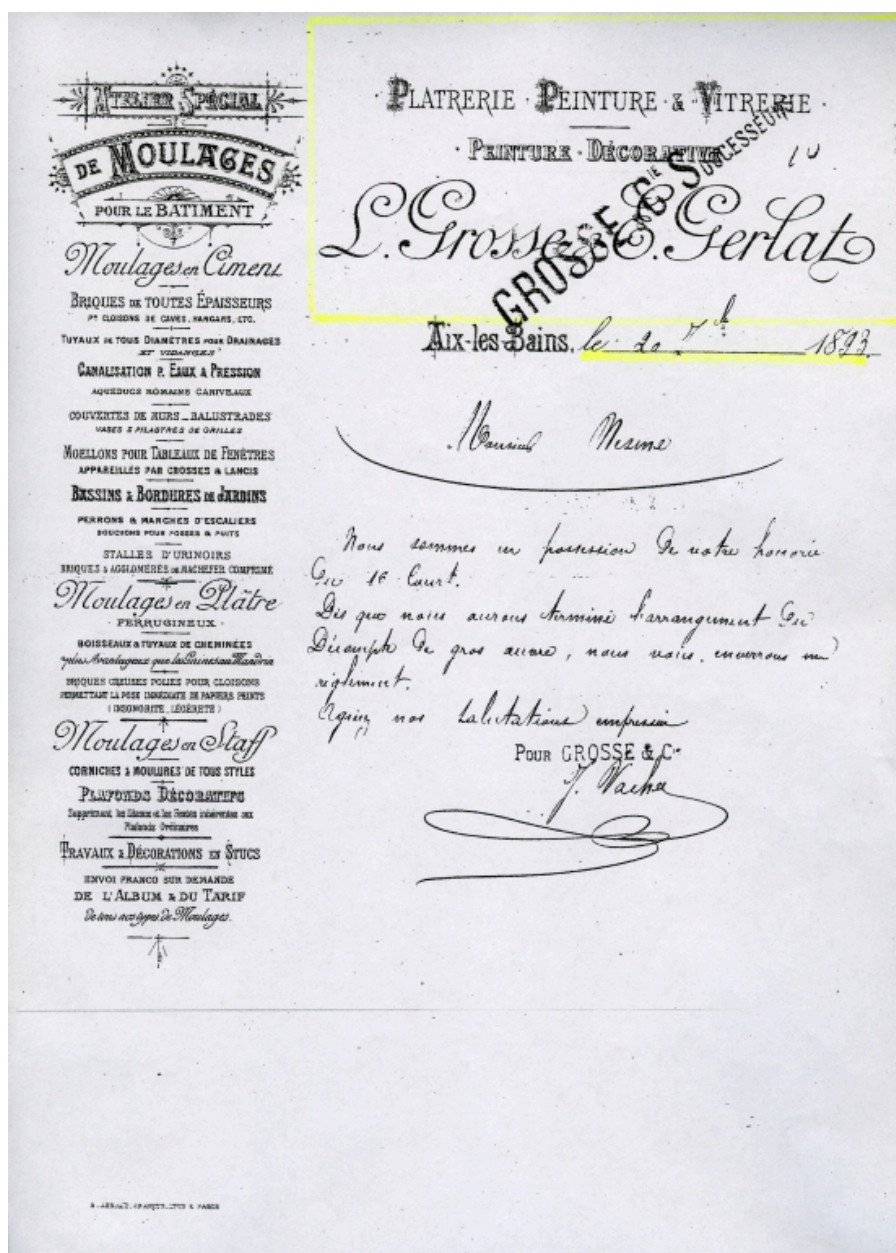 ATELIER SPÉCIAL
DE MOULAGES
POUR LE BATIMENT
Moulages en Ciment
BRIQUES DE TOUTES ÉPAISSEURS
Pr CLOISONS DE CAVES, HANGARS, ETC.
TUYAUX DE TOUS DIAMÈTRES POUR DRAINAGES
ET VIDANGES
CANALISATION P. EAUX A PRESSION
AQUEDUCS ROMAINS CANIVEAUX
COUVERTES DE MURS _ BALUSTRADES
VASES & PILASTRES DE GRILLES
MOELLONS POUR TABLEAUX DE FENÊTRES
APPAREILLÉS PAR GROSSES & LANCIS
BASSINS & BORDURES DE JARDINS
PERRONS & MARCHES D'ESCALIERS
BOUCHONS POUR FOSSES & PUITS
STALLES D'URINOIRS
BRIQUES & AGGLOMÉRÉS DE MACHEFER COMPRIMÉ
Moulages en Plâtre
· FERRUGINEUX ·
BOISSEAUX & TUYAUX DE CHEMINÉES
plus Avantageux que les
BRIQUES CREUSES POLIES POUR CLOISONS
PERMETTANT LA POSE IMMÉDIATE DE PAPIERS PEINTS
(INSONORITÉ, LÉGÈRETÉ)
Moulages en Staff
CORNICHES & MOULURES DE TOUS STYLES
PLAFONDS DÉCORATIFS
Supprimant les et les Fentes inhérentes aux
Plafonds Ordinaires
TRAVAUX & DÉCORATIONS EN STUCS
ENVOI FRANCO SUR DEMANDE
DE L'ALBUM & DU TARIF
De tous nos types De Moulages.
· PLATRERIE · PEINTURE · & · VITRERIE ·
· PEINTURE · DÉCORATIVE
L. Grosse & E. Gerlat
GROSSE & Cie SUCCESSEURS
Aix-les-Bains, le 20 7b 1893
Monsieur
Nous sommes en possession De votre honorée
Du 16 Court.
Dès que nous aurons terminé l'arrangement Du
Décompte De gros œuvre, nous vous enverrons un
règlement.
Agréez nos salutations empressées
POUR GROSSE & Cie